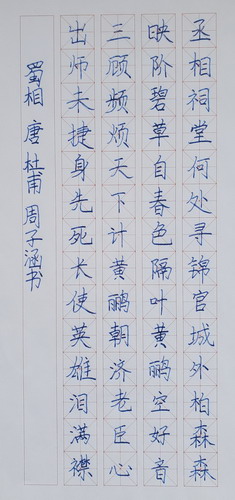 丞相祠堂何处寻锦官城外柏森森
映阶碧草自春色隔叶黄鹂空好音
三顾频烦天下计黄鹂朝济老臣心
出师未捷身先死长使英雄泪满襟
蜀相 唐 杜甫 周子涵书